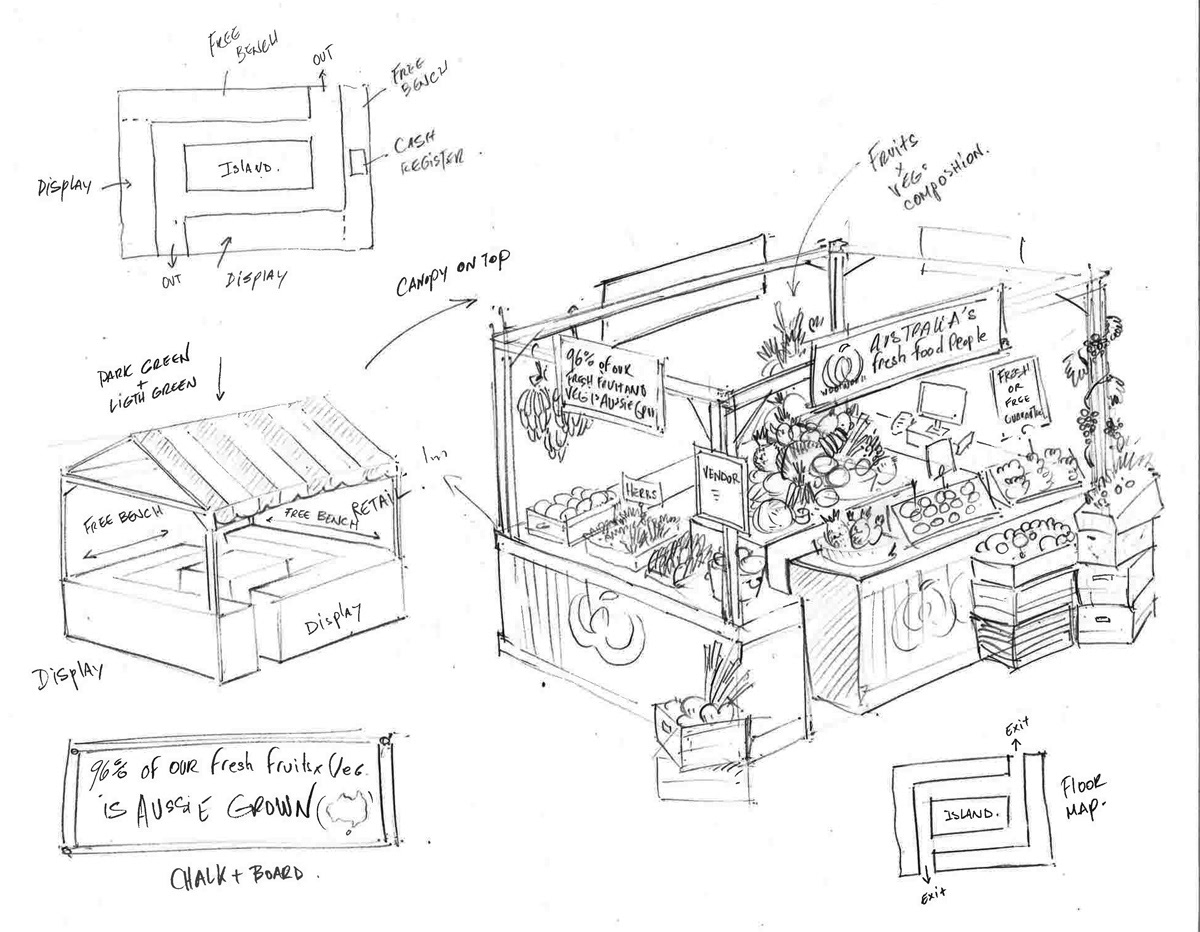 FREE
BENCH
OUT
FREE
BENCH
CASH
REGISTER.
ISLAND.
Display
OUT
Display
FRUITS
x
VEG'
COMPOSITION.
CANOPY ON TOP
DARK GREEN
+
LIGTH GREEN
1m
RETAIL
FREE BENCH
FREE BENCH
Display
Display
96% of our
FRESH FRUIT AND
VEG IS AUSSIE GROW
AUSTRALIA'S
fresh food People
FRESH
OR
FREE
GUARANTEE
HERBS
VENDOR
96% of our fresh fruits x Veg.
is AUSSIE GROWN
CHALK + BOARD.
Exit
FLOOR
MAP.
ISLAND.
Exit